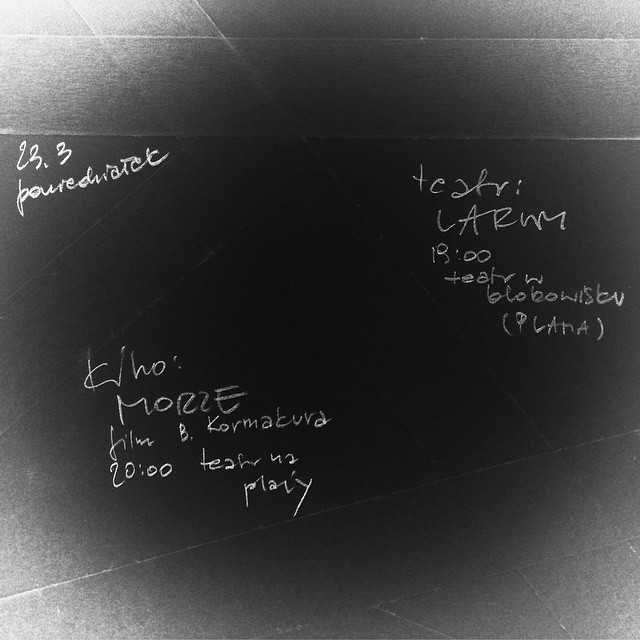 23.3
poniedziałek
teatr:
LARUM
19:00
teatr w
blokowisku
(PLAMA)
kino:
MORZE
film B. Kormakura
20:00 teatr na
plaży